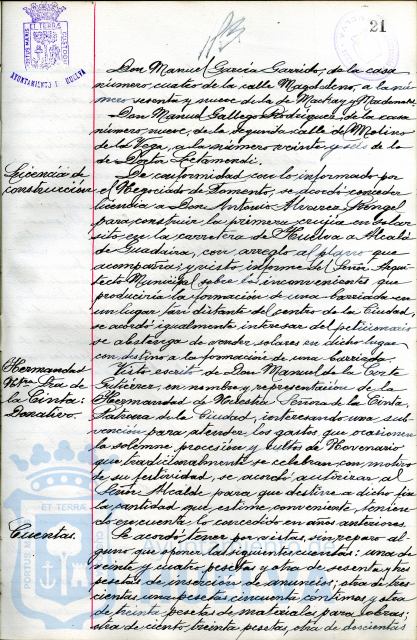 21
PORTUS MARIS ET TERRAE CUSTODIA
AYUNTAMIENTO DE HUELVA
Don Manuel García Garrido, de la casa
número cuatro de la calle Magdalena, a la nú-
mero sesenta y nueve de la de Mackay y Macdonald
Don Manuel Gallego Rodríguez, de la casa
número nueve, de la segunda calle de Molino
de la Vega, a la número veinte y seis de la
de Doña Letamendi.
Licencia de
construcción
De conformidad con lo informado por
el Negociado de Fomento, se acordó conceder
licencia a Don Antonio Alvarez Rangel
para construir la primera crujía en solar
sito en la carretera de Huelva a Alcalá
de Guadaira, con arreglo al plano que
acompaña; y visto informe del Señor Arqui-
tecto Municipal sobre los inconvenientes que
produciría la formación de una barriada en
un lugar tan distante del centro de la Ciudad,
se acordó igualmente interesar del peticionario
se abstenga de vender solares en dicho lugar
con destino a la formación de una barriada.
Hermandad
Ntra. Sra. de
la Cinta:
Donativo.
Visto escrito de Don Manuel de la Corte
Gutiérrez, en nombre y representación de la
Hermandad de Nuestra Señora de la Cinta,
Patrona de la Ciudad, interesando una sub-
vención para atender los gastos que ocasionen
la solemne procesión y cultos de Novenario
que tradicionalmente se celebran con motivo
de su festividad, se acordó autorizar al
Señor Alcalde para que destine a dicho fin
la cantidad que estime conveniente, tenien-
do en cuenta lo concedido en años anteriores.
Cuentas.
Se acordó tener por vistas, sin reparo al-
guno que poner, las siguientes cuentas: una de
veinte y cuatro pesetas y otra de sesenta y tres
pesetas de inserción de anuncios; otra de tres-
cientas una pesetas cincuenta céntimos y otra
de treinta pesetas de materiales para obras;
otra de ciento treinta pesetas, otra de doscientas